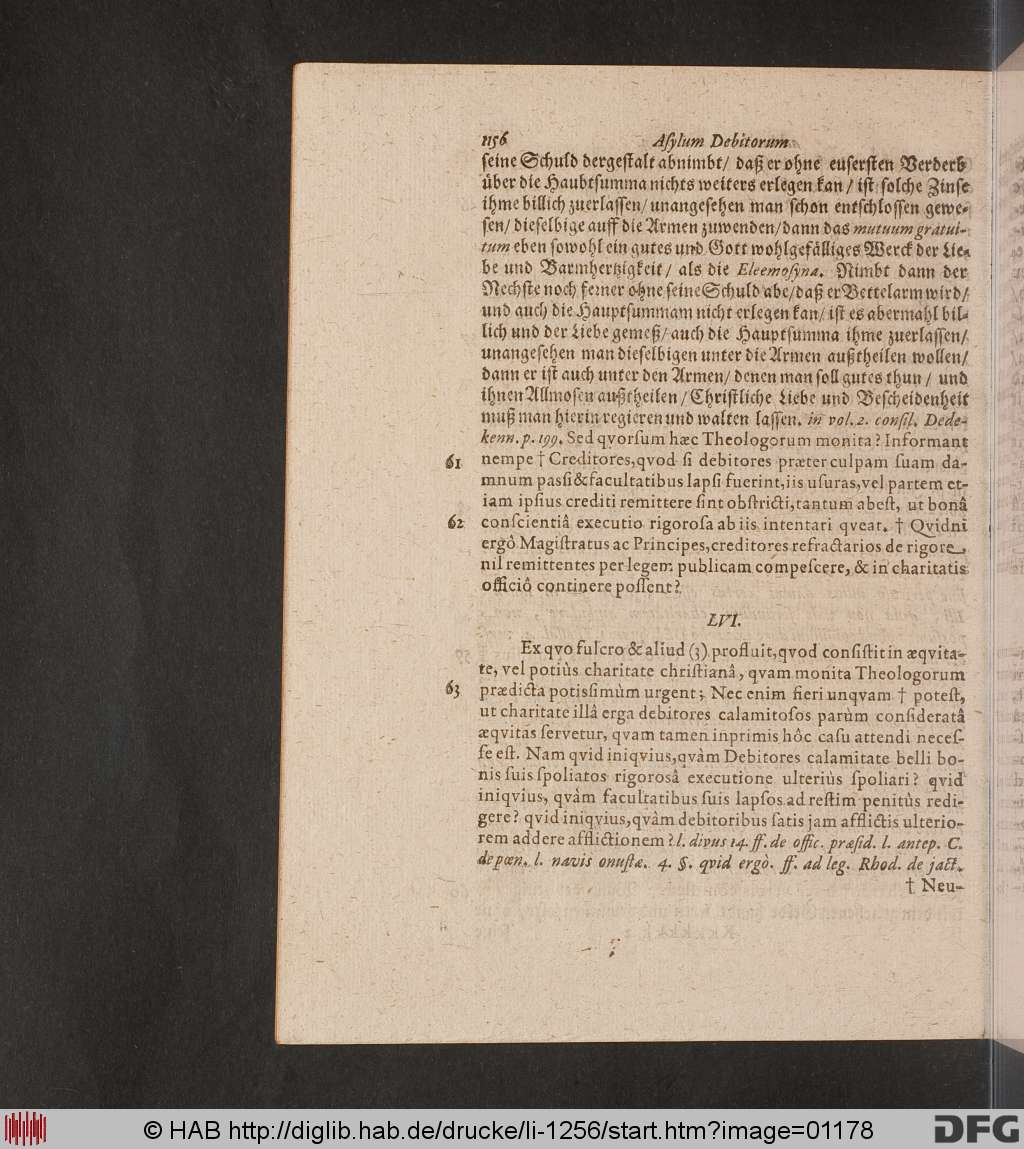 1156 Aſylum Debitorum
ſeine Schuld dergeſtalt abnimbt/ daß er ohne euſerſten Verderb
über die Haubtſumma nichts weiters erlegen kan / iſt ſolche Zinſe
ihme billich zuerlaſſen/ unangeſehen man ſchon entſchloſſen gewe-
ſen/ dieſelbige auff die Armen zuwenden/dann das mutuum gratui-
tum eben ſowohl ein gutes und Gott wohlgefälliges Werck der Lie-
be und Barmhertzigkeit / als die Eleemoſyna. Nimbt dann der
Nechſte noch ferner ohne ſeine Schuld abe/daß er Bettelarm wird/
und auch die Hauptſummam nicht erlegen kan/ iſt es abermahl bil-
lich und der Liebe gemeß/ auch die Hauptſumma ihme zuerlaſſen/
unangeſehen man dieſelbigen unter die Armen außtheilen wollen/
dann er iſt auch unter den Armen/ denen man ſoll gutes thun / und
ihnen Allmoſen außtheilen / Chriſtliche Liebe und Beſcheidenheit
muß man hierin regieren und walten laſſen. in vol. 2. conſil. Dede-
kenn. p. 199. Sed qvorſum hæc Theologorum monita? Informant
61 nempe † Creditores, qvod ſi debitores præter culpam ſuam da-
mnum paſsi & facultatibus lapſi fuerint, iis uſuras, vel partem et-
iam ipſius crediti remittere ſint obſtricti, tantum abeſt, ut bonâ
62 conſcientiâ executio rigoroſa ab iis intentari qveat. † Qvidni
ergô Magiſtratus ac Principes, creditores refractarios de rigore
nil remittentes per legem publicam compeſcere, & in charitatis
officiô continere poſſent?
LVI.
Ex qvo fulcro & aliud (3) profluit, qvod conſiſtit in æqvita-
te, vel potiùs charitate chriſtianâ, qvam monita Theologorum
63 prædicta potiſsimùm urgent; Nec enim fieri unqvam † poteſt,
ut charitate illâ erga debitores calamitoſos parùm conſideratâ
æqvitas ſervetur, qvam tamen inprimis hôc caſu attendi neceſ-
ſe eſt. Nam qvid iniqvius, qvàm Debitores calamitate belli bo-
nis ſuis ſpoliatos rigorosâ executione ulteriùs ſpoliari? qvid
iniqvius, qvàm facultatibus ſuis lapſos ad reſtim penitùs redi-
gere? qvid iniqvius, qvàm debitoribus ſatis jam afflictis ulterio-
rem addere afflictionem? l. divus 14. ff. de offic. præſid. l. antep. C.
de pœn. l. navis onuſtæ. 4. §. qvid ergò. ff. ad leg. Rhod. de jact.
† Neu-
© HAB http://diglib.hab.de/drucke/li-1256/start.htm?image=01178
DFG